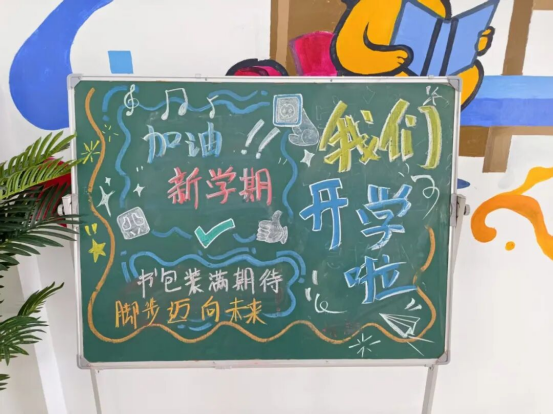 加油!!
新学期
我们
开学
啦
书包装满期待
脚步迈向未来